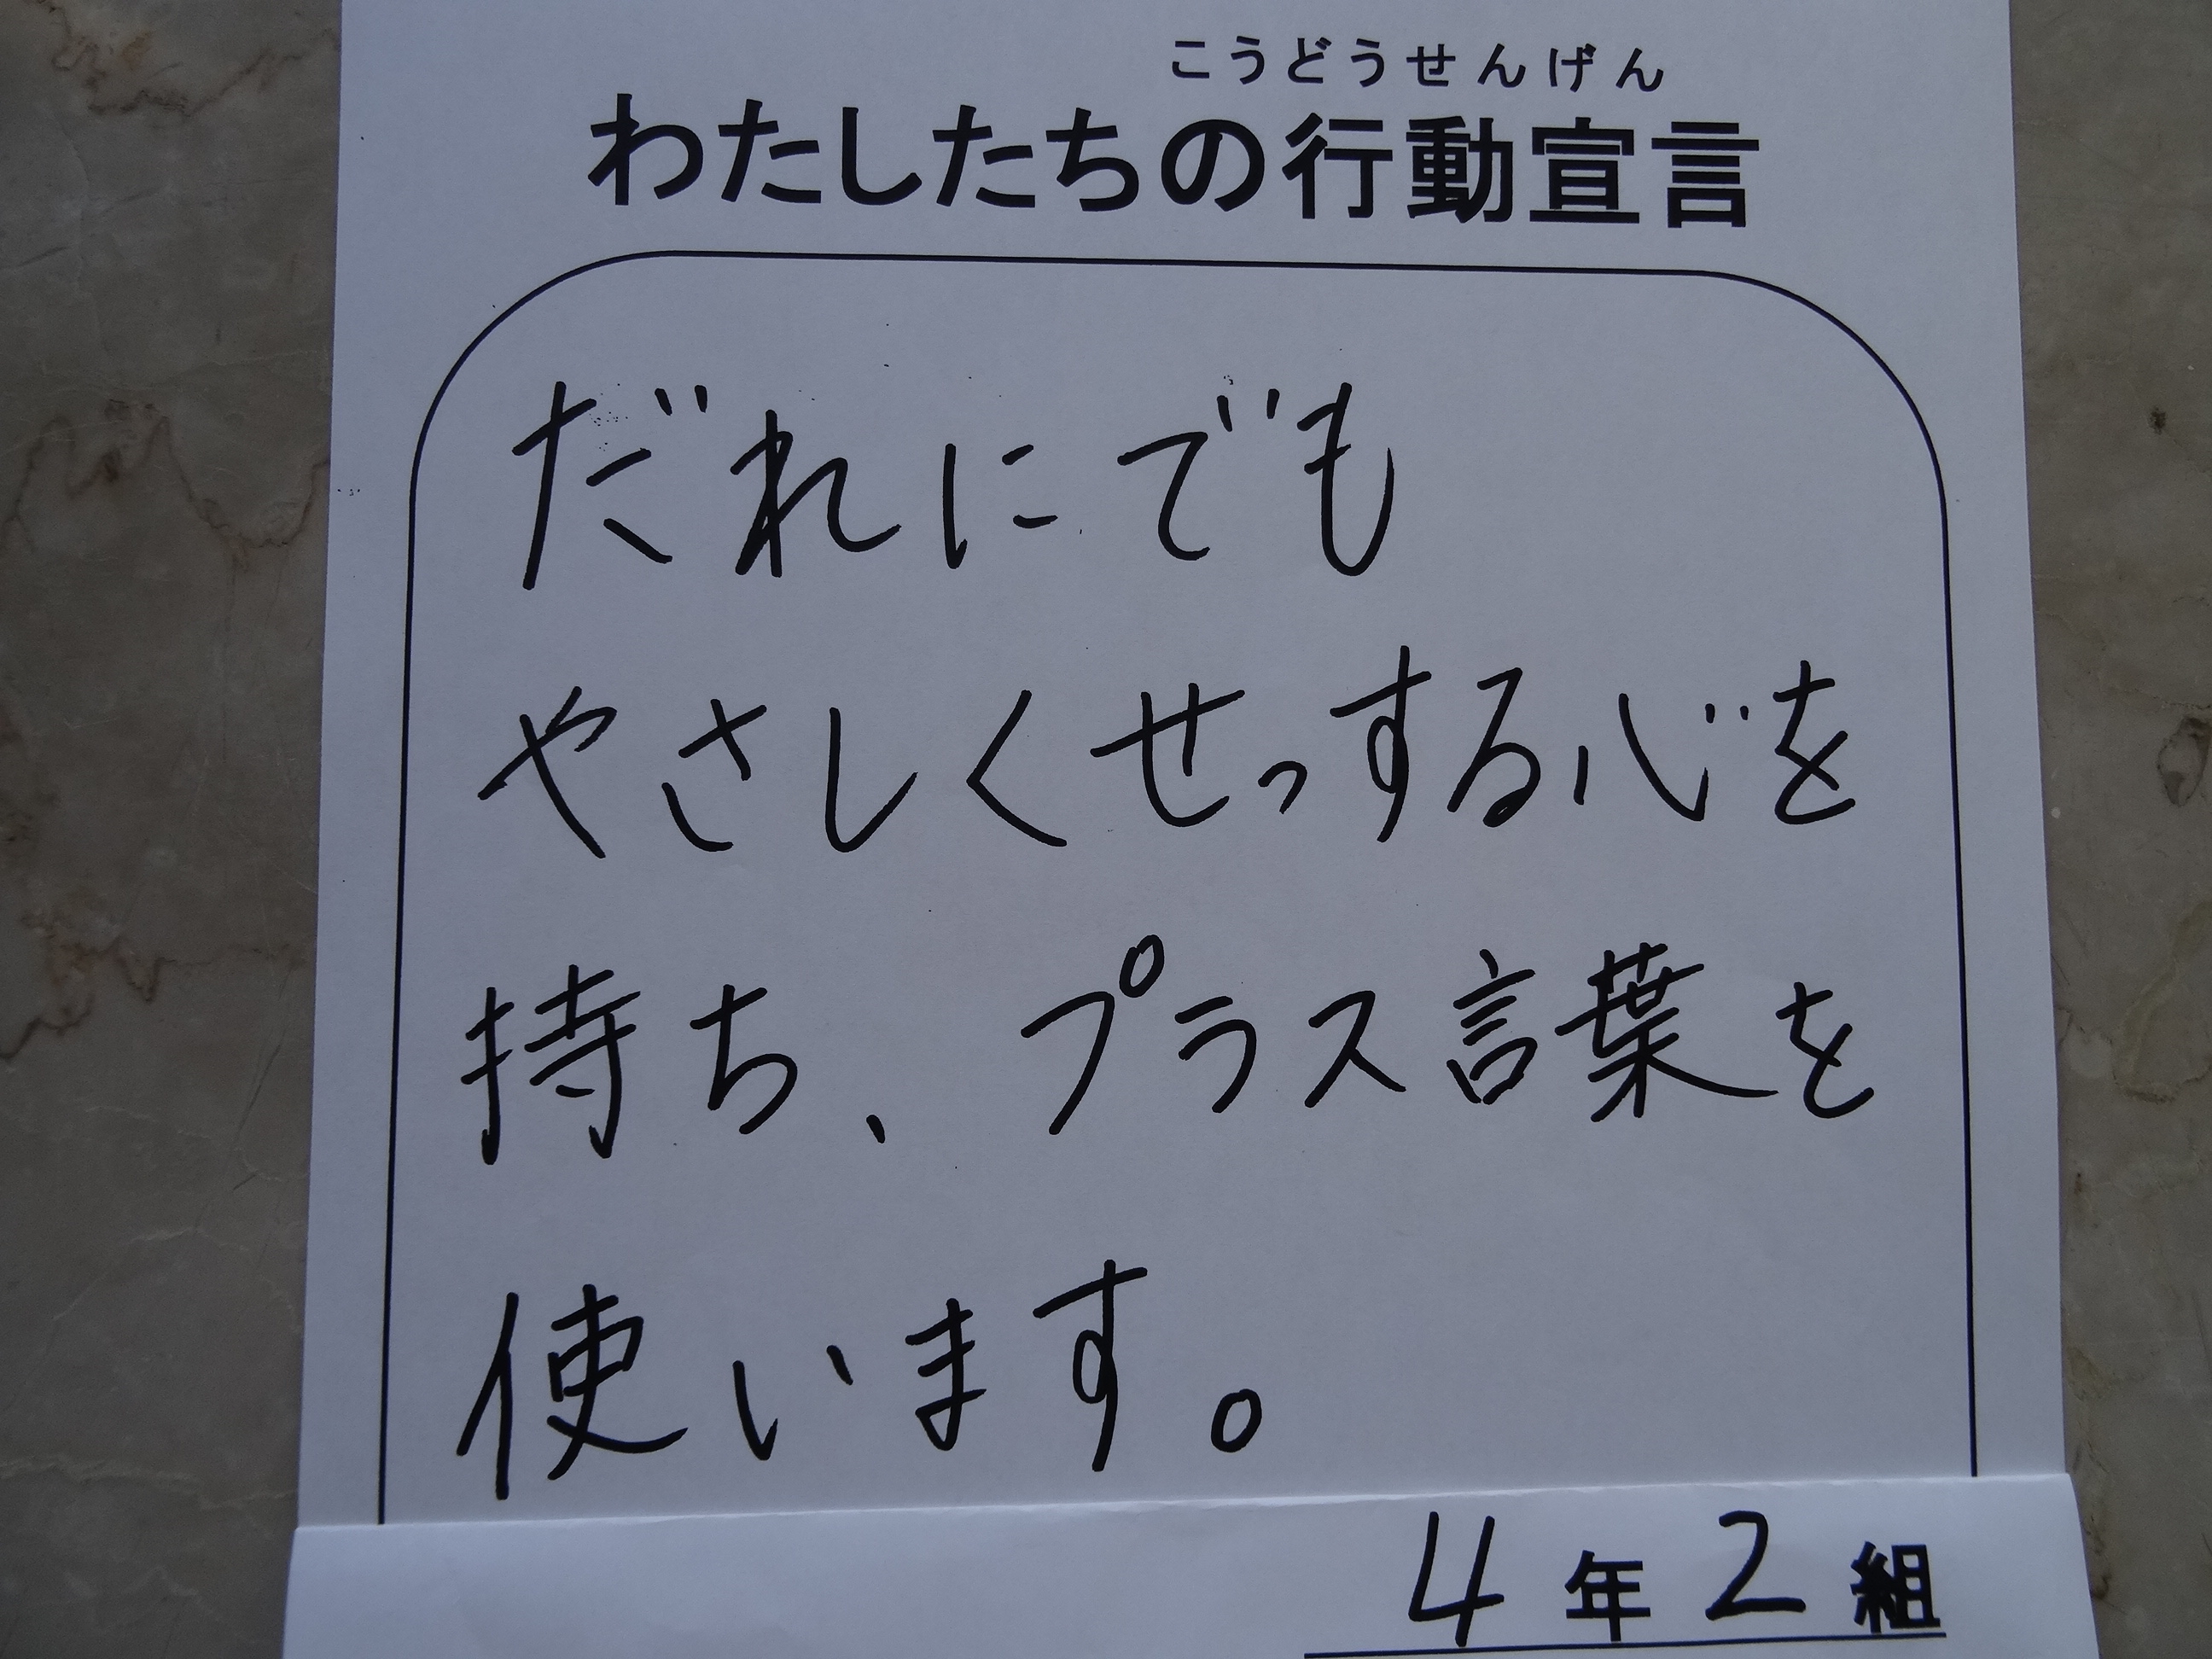 こうどうせんげん
わたしたちの行動宣言
だれにでも
やさしくせっする心を
持ち、プラス言葉を
使います。
4年2組